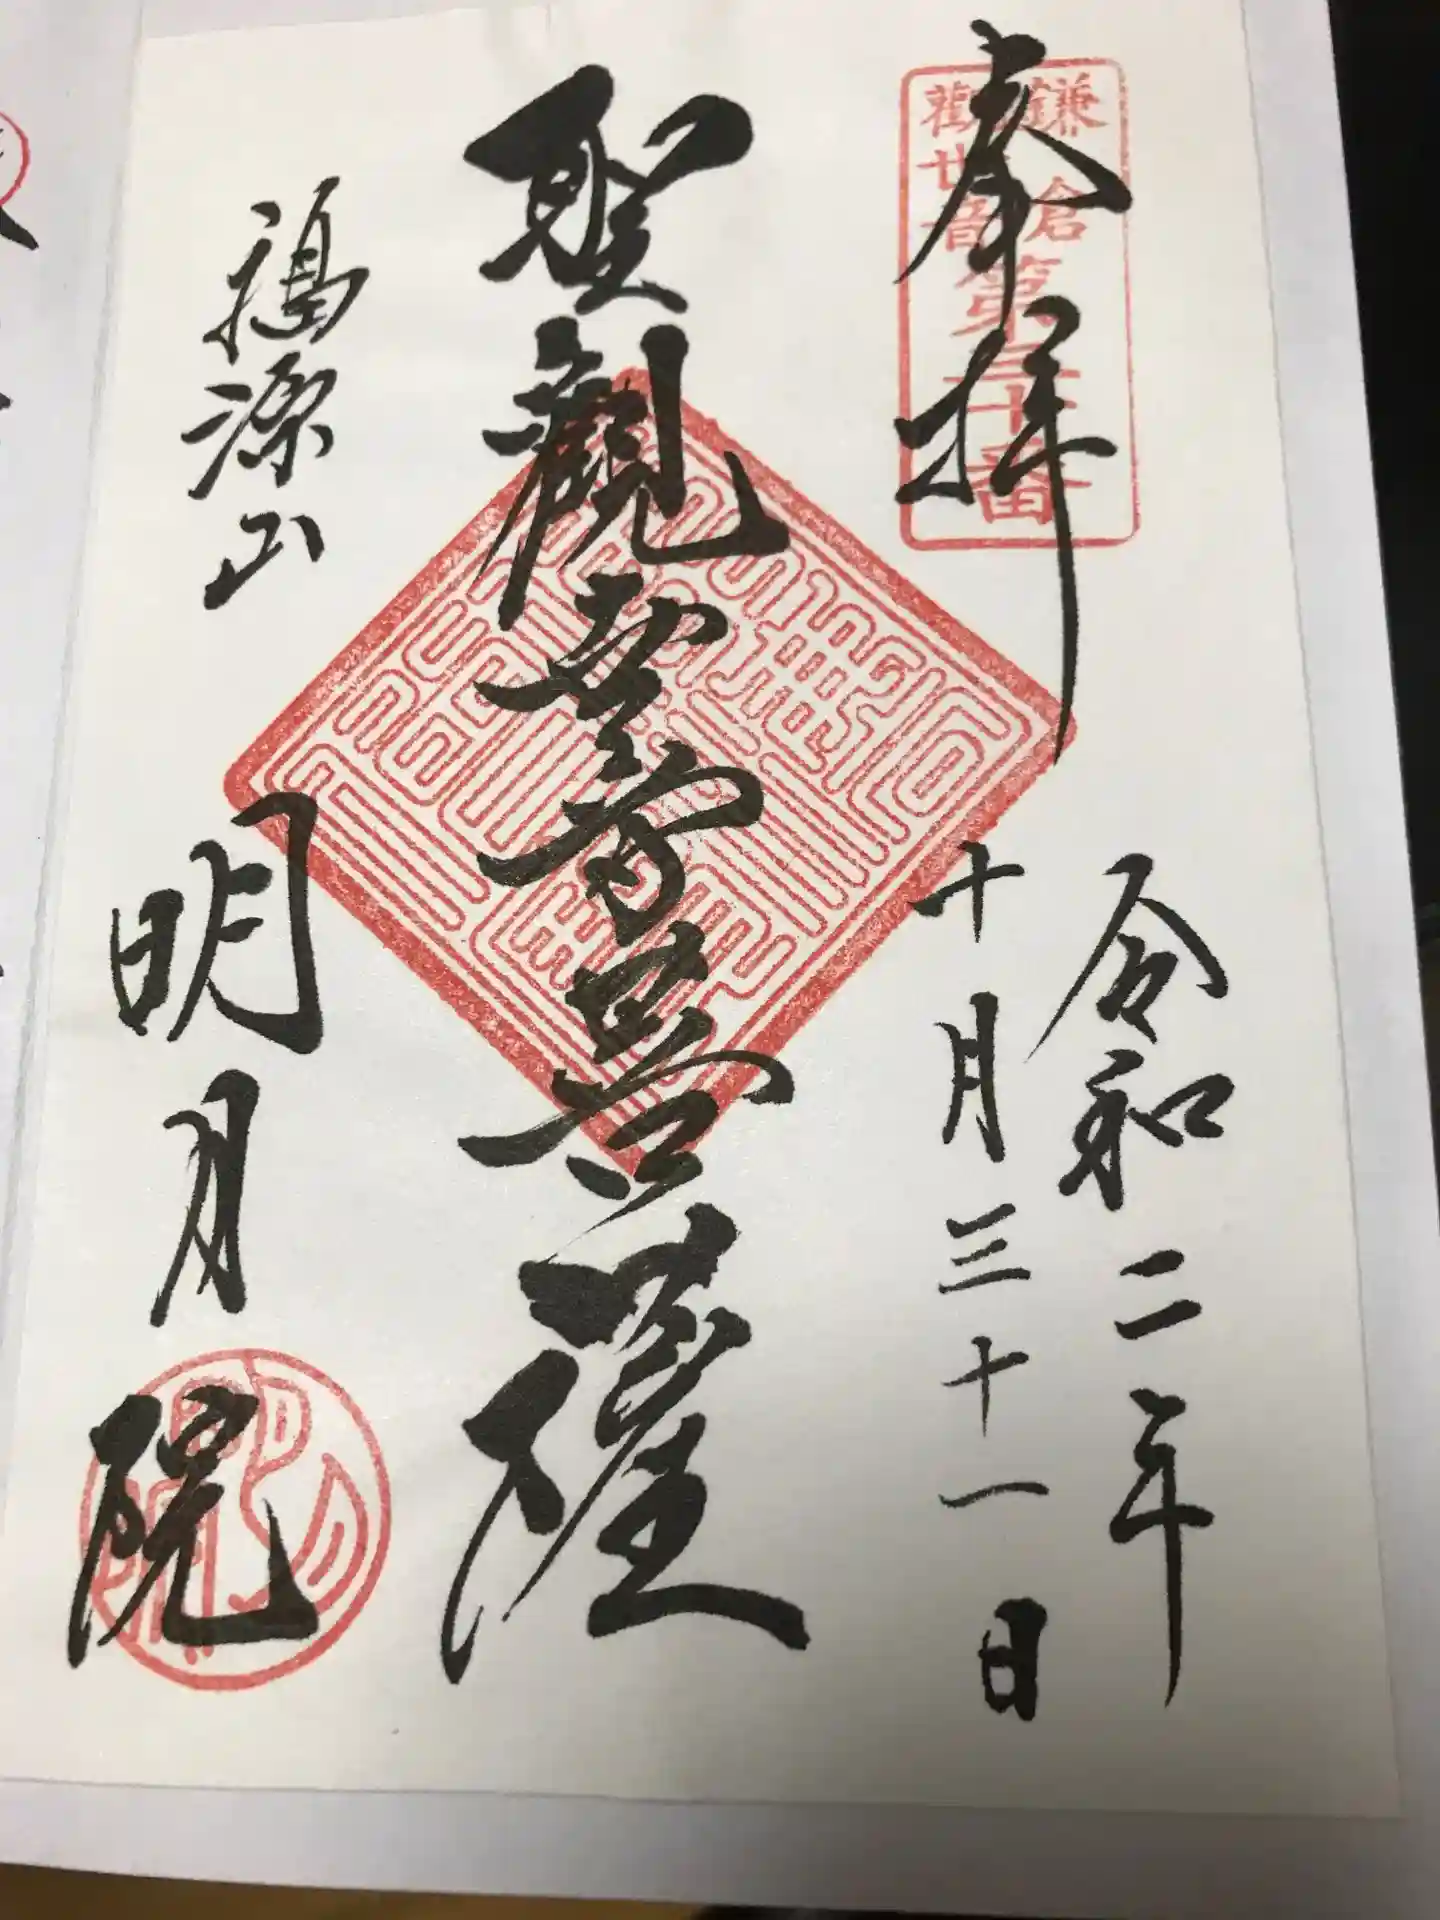 奉拝
鎌倉
観世音
第三十番
令和二年
十月三十一日
聖観世音菩薩
福源山
明月院